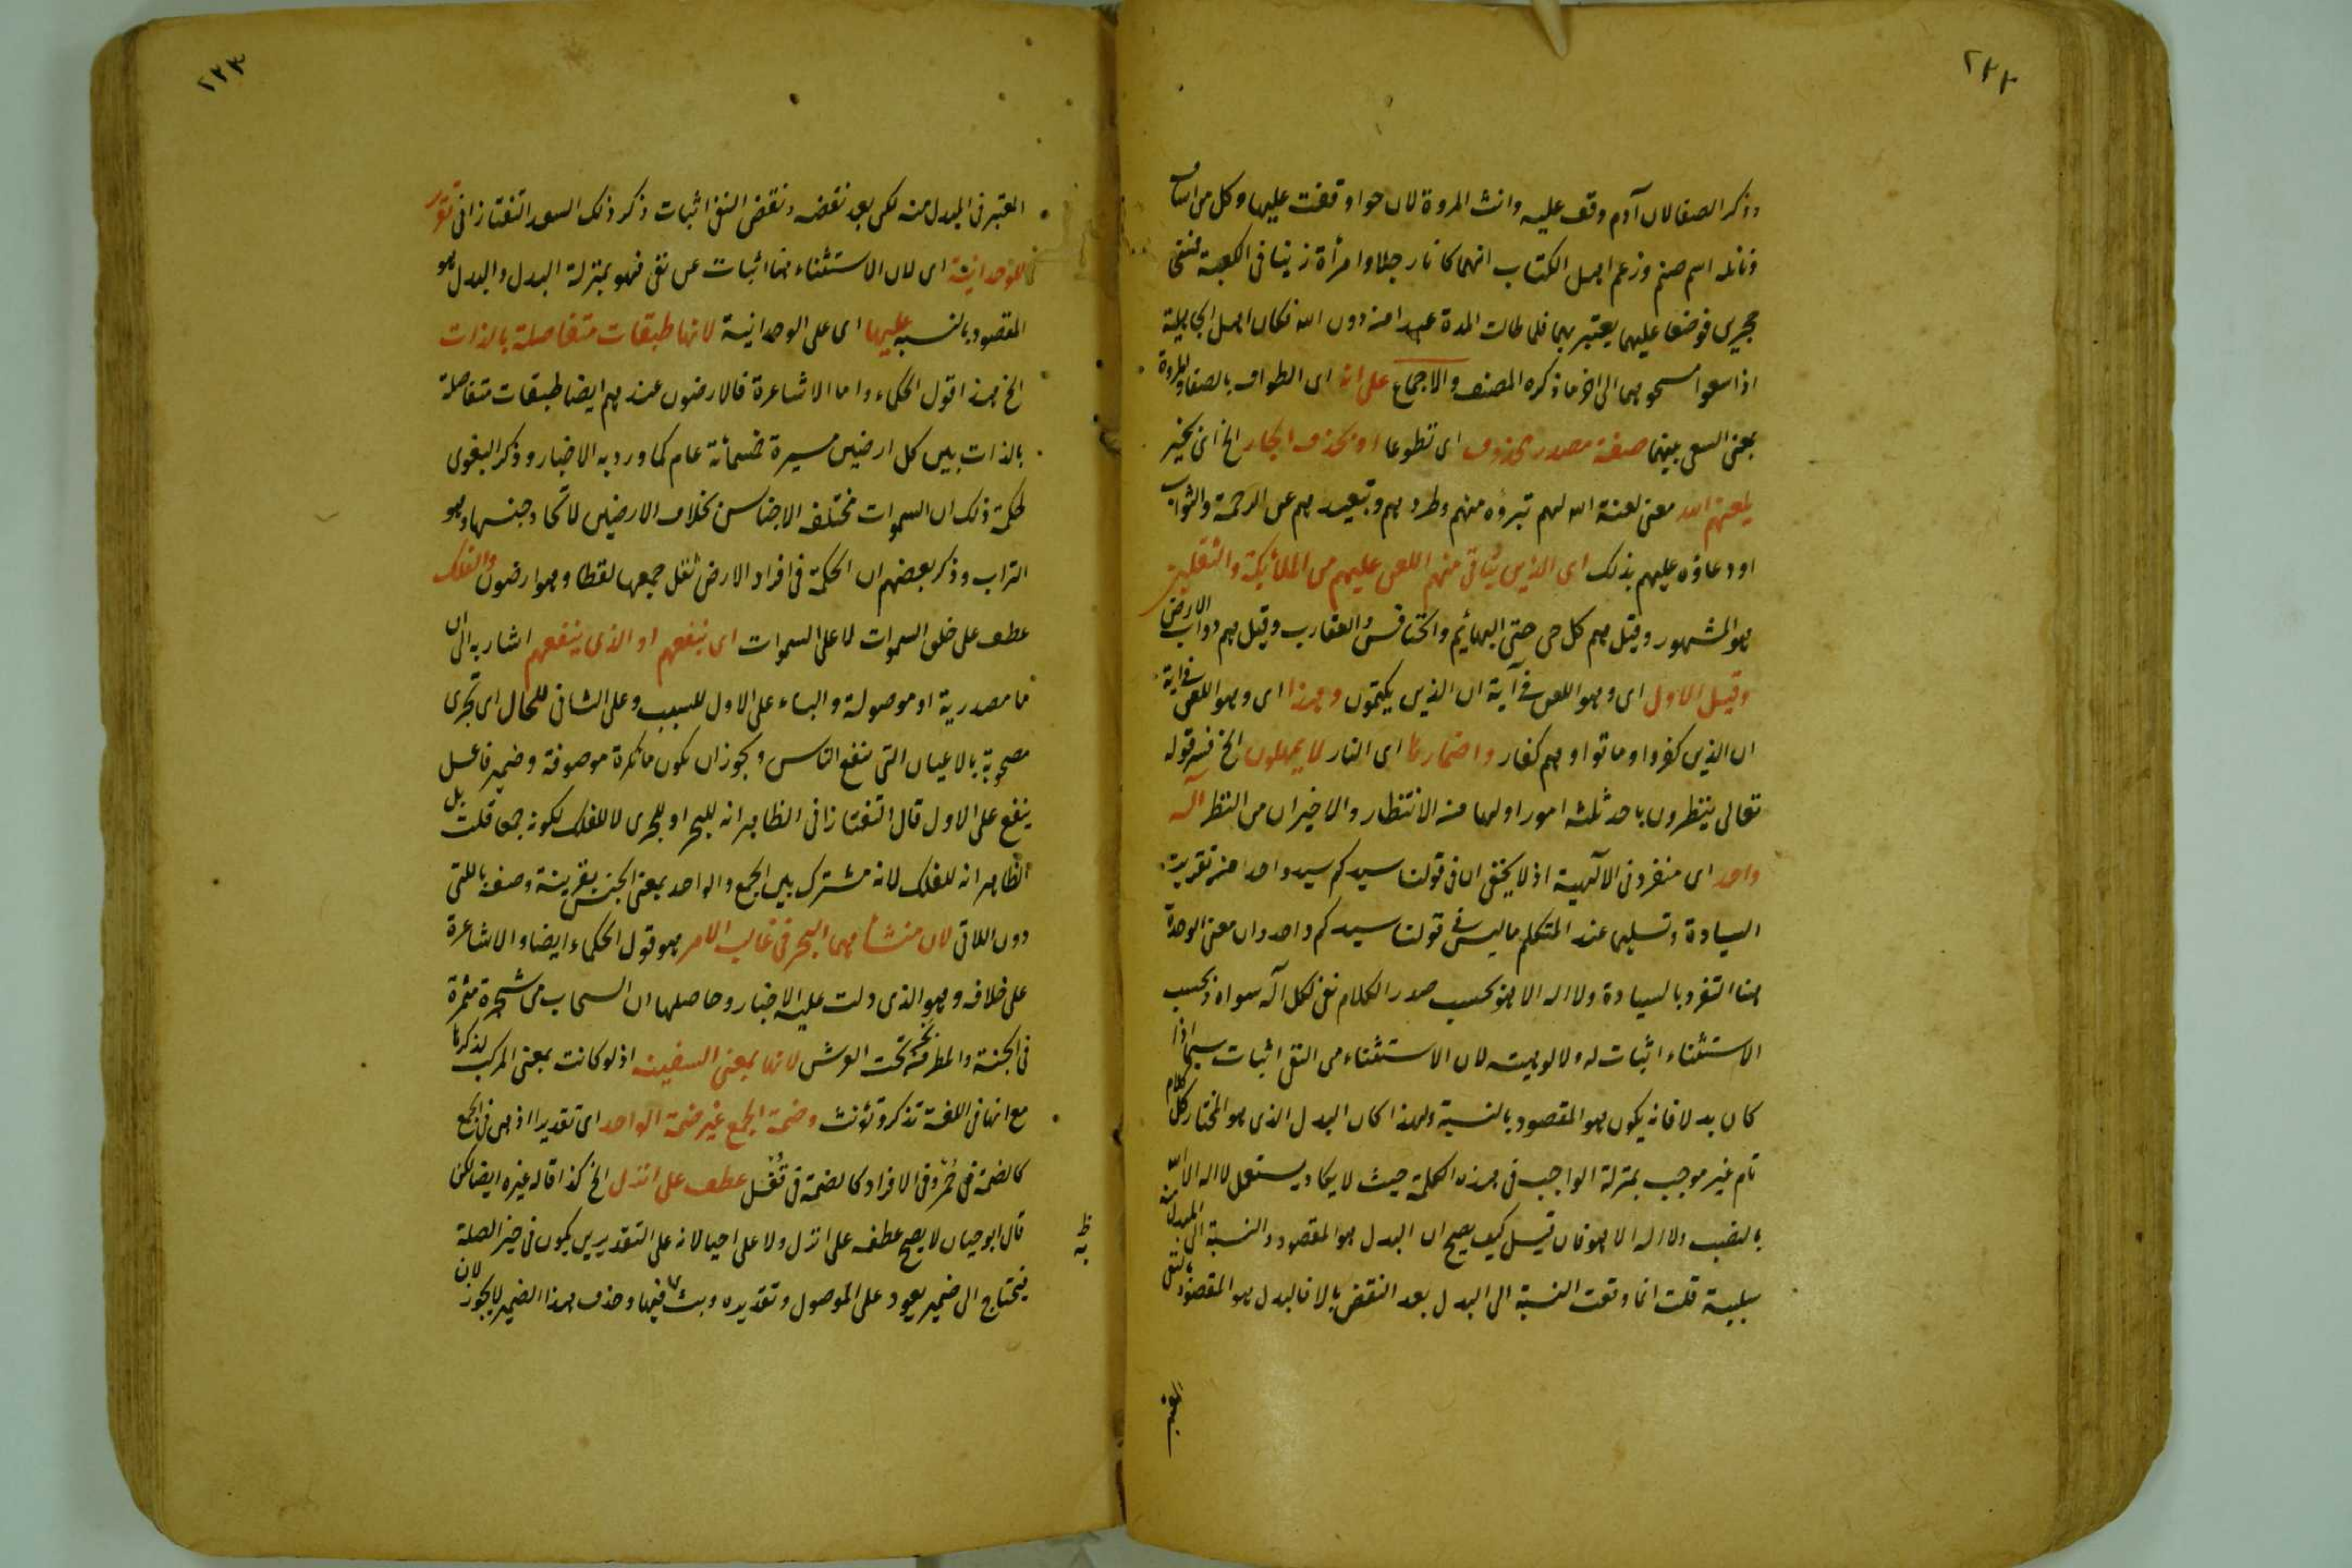 ٢٢٢
وذكر الصفا لان آدم وقف عليه وانث المروة لان حوا وقفت عليها وكل من اساف
ونائلة اسم صنم وزعم اهل الكتاب انهما كانا رجلا وامرأة زنيا في الكعبة فمسخا
حجرين فوضعا عليهما يعتبر بهما فلما طالت المدة عبدا من دون الله فكان اهل الجاهلية
اذا سعوا مسحوهما الى اخر ما ذكره المصنف والاجماع على انه اى الطواف بالصفا والمروة
بمعنى السعى بينهما صفة مصدر محذوف اى تطوعا او بحذف الجار الخ اى بخير
يلعنهم الله معنى لعنة الله لهم تبرؤه منهم وطردهم وتبعيدهم عن الرحمة والثواب
او دعاؤه عليهم بذلك اى الذين يتأتى منهم اللعن عليهم من الملائكة والثقلين
هو المشهور وقيل هم كل حى حتى البهائم والخنافس والعقارب وقيل هم دواب الارض
وقيل الاول اى وهو اللعن فى آية ان الذين يكتمون وهذا اى وهو اللعن فى اية
ان الذين كفروا وماتوا وهم كفار واضمارها اى النار لا يمهلون الخ فسر قوله
تعالى ينظرون باحد ثلثة امور اولها من الانتظار والاخيران من النظر اله
واحد اى منفرد فى الالهية اذ لا يخفى ان فى قولنا سيدكم سيد واحد من تقرير
السيادة وتسليمها عند المتكلم ما ليس فى قولنا سيدكم واحد وان معنى الوحدة
هنا التفرد بالسيادة ولا اله الا هو بحسب صدر الكلام نفى لكل آله سواه وبحسب
الاستثناء اثبات له ولالوهيته لان الاستثناء من النفى اثبات سيما اذا
كان بدلا فانه يكون هو المقصود بالنسبة ولهذا كان البدل الذى هو المختار كل كلام
تام غير موجب بمنزلة الواجب فى هذه الكلمة حيث لا يكاد يستعمل لا اله الا الله
بالنصب ولا اله الا هو فان قيل كيف يصح ان البدل هو المقصود والنسبة الى المبدل منه
سلبية قلت انما وقعت النسبة الى البدل بعد النقض بالا فالبدل هو المقصود بالنفى
المعتبر
٢٢٣
المعتبر فى المبدل منه لكن بعد نقضه ونقض النفى اثبات ذكر ذلك السعد التفتازانى تقرير
للوحدانية اى لان الاستثناء هنا اثبات عن نفى فهو بمنزلة البدل والبدل هو
المقصود بالنسبة عليها اى على الوحدانية لانها طبقات متفاصلة بالذات
الخ هذا قول الحكماء واما الاشاعرة فالارضون عندهم ايضا طبقات متفاصلة
بالذات بين كل ارضين مسيرة خمسمائة عام كما ورد به الاخبار وذكر البغوى
لحكمة ذلك ان السموات مختلفة الاجناس بخلاف الارضين لاتحاد جنسها وهو
التراب وذكر بعضهم ان الحكمة فى افراد الارض ثقل جمعها لفظا وهو ارضون والفلك
عطف على خلق السموات لا على السموات اى ينفعهم او الذى ينفعهم اشار به الى ان
ما مصدرية او موصولة والباء على الاول للسبب وعلى الثانى للحال اى تجرى
مصحوبة بالاعيان التى تنفع الناس ويجوز ان يكون ما نكرة موصوفة وضمير فاعل
ينفع على الاول قال التفتازانى الظاهر انه للبحر او للجرى لا للفلك لكونه جمعا قلت بل
الظاهر انه للفلك لانه مشترك بين الجمع والواحد بمعنى الجنس بقرينة وصفه بالتى
دون اللاتى لان منشأهما البحر فى غالب الامر هو قول الحكماء ايضا والاشاعرة
على خلافه وهو الذى دلت عليه الاخبار وحاصلها ان السحاب من شجرة مثمرة
فى الجنة والمطر من بحر تحت العرش لانها بمعنى السفينة اذ لو كانت بمعنى المركب لذكرها
مع انها فى اللغة تذكر وتؤنث وضمة الجمع غير ضمة الواحد اى تقديرا اذ هى فى الجمع
كالضمة فى حمر وفى الافراد كالضمة فى قفل عطف على انزل الخ كذا قاله غيره ايضا لكن
قال ابو حيان لا يصح عطفه على انزل ولا على احيا لانه على التقديرين يكون فى حيز الصلة
فيحتاج الى ضمير يعود على الموصول وتقديره وبث به فيها وحذف هذا الضمير لا يجوز لان